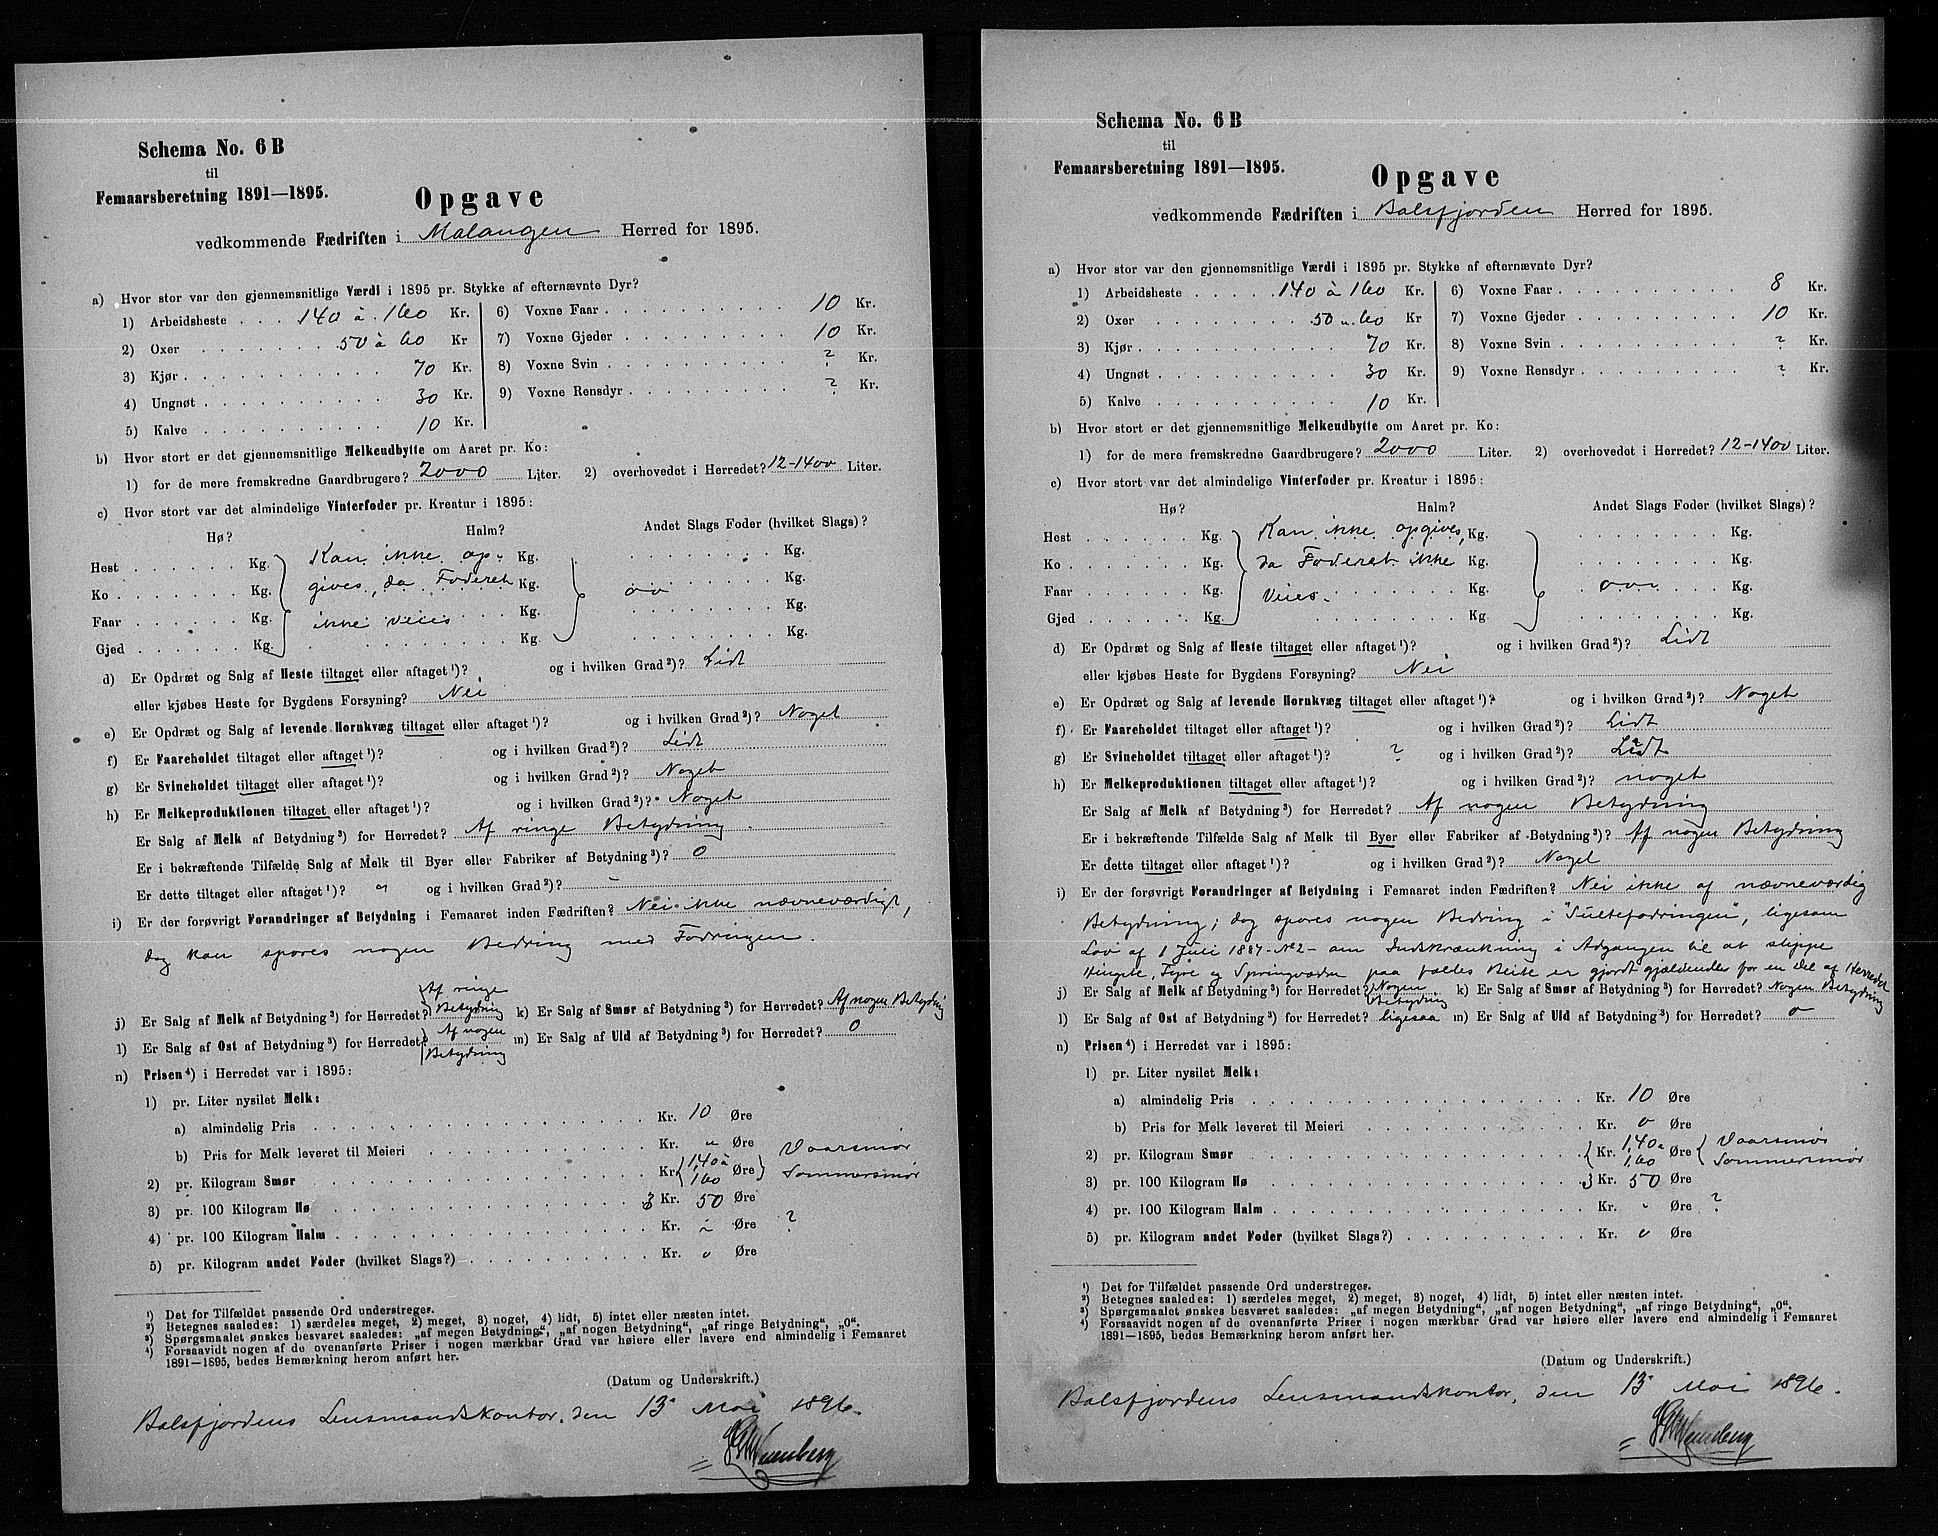 Schema No. 6 B
til
Femaarsberetning 1891—1895.
Opgave
vedkommende Fædriften i Malangen Herred for 1895.
a) Hvor stor var den gjennemsnitlige Værdi i 1895 pr. Stykke af efternævnte Dyr?
1) Arbeidsheste . . . 140 à 160 Kr. 6) Voxne Faar . . . . . . . . . . 10 Kr.
2) Oxer . . . . . . . 50 à 60 Kr 7) Voxne Gjeder . . . . . . . . . 10 Kr.
3) Kjør . . . . . . . . . . 70 Kr. 8) Voxne Svin . . . . . . . . . . ? Kr.
4) Ungnøt . . . . . . . . . 30 Kr. 9) Voxne Rensdyr . . . . . . . . . ? Kr.
5) Kalve . . . . . . . . . . 10 Kr.
b) Hvor stort er det gjennemsnitlige Melkeudbytte om Aaret pr. Ko:
1) for de mere fremskredne Gaardbrugere? 2000 Liter. 2) overhovedet i Herredet? 12-1400 Liter.
c) Hvor stort var det almindelige Vinterfoder pr. Kreatur i 1895:
Hø? Halm? Andet Slags Foder (hvilket Slags)?
Hest . . . . . . Kg. Kan ikke op- Kg. . . . . . . . . Kg.
Ko . . . . . . . Kg. gives, da Foderet Kg. . . . . . . . . Kg.
Faar . . . . . . Kg. ikke veies Kg. . . . . . . . . Kg.
Gjed . . . . . . Kg. . . . . . . . . Kg. . . . . . . . . Kg.
d) Er Opdræt og Salg af Heste tiltaget eller aftaget ¹)? og i hvilken Grad ²)? Lidt
eller kjøbes Heste for Bygdens Forsyning? Nei
e) Er Opdræt og Salg af levende Hornkvæg tiltaget eller aftaget ¹)? og i hvilken Grad ²)? Noget
f) Er Faareholdet tiltaget eller aftaget ¹)? og i hvilken Grad ²)? Lidt
g) Er Svineholdet tiltaget eller aftaget ¹)? og i hvilken Grad ²)? Noget
h) Er Melkeproduktionen tiltaget eller aftaget ¹)? og i hvilken Grad ²)? Noget
Er Salg af Melk af Betydning ³) for Herredet? Af ringe Betydning.
Er i bekræftende Tilfælde Salg af Melk til Byer eller Fabriker af Betydning ³)? 0
Er dette tiltaget eller aftaget ¹)? og i hvilken Grad ²)?
i) Er der forøvrigt Forandringer af Betydning i Femaaret inden Fædriften? Nei ikke nævneværdigt,
dog kan spores nogen Bedring med Fodringen.
j) Er Salg af Melk af Betydning ³) for Herredet? Af ringe Betydning k) Er Salg af Smør af Betydning ³) for Herredet? Af nogen Betydnig
l) Er Salg af Ost af Betydning ³) for Herredet? Af nogen Betydning m) Er Salg af Uld af Betydning ³) for Herredet? 0
n) Prisen ⁴) i Herredet var i 1895:
1) pr. Liter nysilet Melk:
a) almindelig Pris . . . . . . . . Kr. 10 Øre
b) Pris for Melk leveret til Meieri . . . . . . . . Kr. Øre
2) pr. Kilogram Smør . . . . . . . . Kr. { 1,40 à 160 Øre } Vaarsmør Sommersmør
3) pr. 100 Kilogram Hø . . . . . . . . 3 Kr. 50 Øre
4) pr. 100 Kilogram Halm . . . . . . . . Kr. Øre ?
5) pr. Kilogram andet Foder (hvilket Slags?) . . . . . . . . Kr. o Øre
¹) Det for Tilfældet passende Ord understreges.
²) Betegnes saaledes: 1) særdeles meget, 2) meget, 3) noget, 4) lidt, 5) intet eller næsten intet.
³) Spørgsmaalet ønskes besvaret saaledes: „af megen Betydning“, „af nogen Betydning“, „af ringe Betydning“, „0“.
⁴) Forsaavidt nogen af de ovenanførte Priser i nogen mærkbar Grad var høiere eller lavere end almindelig i Femaaret
1891—1895, bedes Bemærkning herom anført her.
(Datum og Underskrift.)
Balsfjordens Lensmandskontor, den 13 Mai 1896.
Schema No. 6 B
til
Femaarsberetning 1891—1895.
Opgave
vedkommende Fædriften i Balsfjorden Herred for 1895.
a) Hvor stor var den gjennemsnitlige Værdi i 1895 pr. Stykke af efternævnte Dyr?
1) Arbeidsheste . . . . . 140 à 160 Kr. 6) Voxne Faar . . . . . . . . . . 8 Kr.
2) Oxer . . . . . . . . 50 à 60 Kr 7) Voxne Gjeder . . . . . . . . . 10 Kr.
3) Kjør . . . . . . . . . . 70 Kr. 8) Voxne Svin . . . . . . . . . . ? Kr.
4) Ungnøt . . . . . . . . . 30 Kr. 9) Voxne Rensdyr . . . . . . . . . ? Kr.
5) Kalve . . . . . . . . . . 10 Kr.
b) Hvor stort er det gjennemsnitlige Melkeudbytte om Aaret pr. Ko:
1) for de mere fremskredne Gaardbrugere? 2000 Liter. 2) overhovedet i Herredet? 12-1400 Liter.
c) Hvor stort var det almindelige Vinterfoder pr. Kreatur i 1895:
Hø? Halm? Andet Slags Foder (hvilket Slags)?
Hest . . . . . . Kg. Kan ikke opgives, Kg. . . . . . . . . Kg.
Ko . . . . . . . Kg. da Foderet ikke Kg. . . . . . . . . Kg.
Faar . . . . . . Kg. Veies. Kg. . . . . . . . . Kg.
Gjed . . . . . . Kg. . . . . . . . . Kg. . . . . . . . . Kg.
d) Er Opdræt og Salg af Heste tiltaget eller aftaget ¹)? og i hvilken Grad ²)? Lidt
eller kjøbes Heste for Bygdens Forsyning? Nei
e) Er Opdræt og Salg af levende Hornkvæg tiltaget eller aftaget ¹)? og i hvilken Grad ²)? Noget
f) Er Faareholdet tiltaget eller aftaget ¹)? og i hvilken Grad ²)? Lidt
g) Er Svineholdet tiltaget eller aftaget ¹)? ? og i hvilken Grad ²)? Lidt
h) Er Melkeproduktionen tiltaget eller aftaget ¹)? og i hvilken Grad ²)? noget
Er Salg af Melk af Betydning ³) for Herredet? Af nogen Betydning
Er i bekræftende Tilfælde Salg af Melk til Byer eller Fabriker af Betydning ³)? Af nogen Betydning
Er dette tiltaget eller aftaget ¹)? og i hvilken Grad ²)? Noget
i) Er der forøvrigt Forandringer af Betydning i Femaaret inden Fædriften? Nei ikke af nævneværdig
Betydning; dog spores nogen Bedring i "Sultefodringen", ligesom
Lov af 1 Juli 1887 - No 2 - om Indskrænkning i Adgangen til at slippe
Hingste, Tyre og Springvædre paa fælles Beite er gjordt gjældendes for en del af Herredet
j) Er Salg af Melk af Betydning ³) for Herredet? Nogen Betydning k) Er Salg af Smør af Betydning ³) for Herredet? Nogen Betydning
l) Er Salg af Ost af Betydning ³) for Herredet? ligesaa m) Er Salg af Uld af Betydning ³) for Herredet? o
n) Prisen ⁴) i Herredet var i 1895:
1) pr. Liter nysilet Melk:
a) almindelig Pris . . . . . . . . Kr. 10 Øre
b) Pris for Melk leveret til Meieri . . . . . . . . Kr. o Øre
2) pr. Kilogram Smør . . . . . . . . { Kr. 1,40 à 1,60 Øre { Vaarsmør Sommersmør
3) pr. 100 Kilogram Hø . . . . . . . . 3 Kr. 50 Øre
4) pr. 100 Kilogram Halm . . . . . . . . Kr. Øre ?
5) pr. Kilogram andet Foder (hvilket Slags?) . . . . . . . . Kr. o Øre
¹) Det for Tilfældet passende Ord understreges.
²) Betegnes saaledes: 1) særdeles meget, 2) meget, 3) noget, 4) lidt, 5) intet eller næsten intet.
³) Spørgsmaalet ønskes besvaret saaledes: „af megen Betydning“, „af nogen Betydning“, „af ringe Betydning“, „0“.
⁴) Forsaavidt nogen af de ovenanførte Priser i nogen mærkbar Grad var høiere eller lavere end almindelig i Femaaret
1891—1895, bedes Bemærkning herom anført her.
(Datum og Underskrift.)
Balsfjordens Lensmandskontor, den 13 Mai 1896.